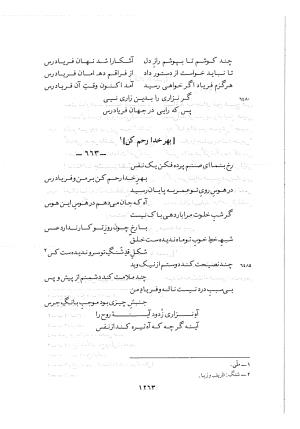 چند کوشم تا بپوشم راز دل
آشکارا شد نهان فریادرس
تا نیاید خواست از دستور داد
از فراقم دهٔ امان فریادرس
هرگزم فریاد اگر خواهی رسید
آمد اکنون وقت آن فریادرس
۹۶۸۰
گر نزاری را بدین زاری نیی
پس که رایی در جهان فریادرس
[بهر خدا رحم کن]۱
ــ ۶۶۳ ــ
رخ بنمای صنم پرده فکن یک نفس
بهر خدا رحم کن بر من و فریاد رس
در هوس روی تو عمر به پایان رسید
آه که جان می‌دهم در هوس این هوس
گر شب خلوت مرا با دهی باک نیست
با رخ چون روز تو کار ندارد عسس
شبه خط خوب تو ماه ندیدست خلق
شکل قد شنگ تو سرو ندیدست کس۲
۹۶۸۵
چند نصیحت کند دوستم از نیک و بد
چند ملامت کند دشمنم از پیش و پس
بی‌سبب درد نیست ناله و فریاد من
جنبش چیزی بود موجب بانگ جرس
آه نزاری زدود آینهٔ روح را
آینه گر چه که آه تیره کند از نفس
۱ ــ ملی.
۲ ــ شنگ: ظریف و زیبا.
۱۲۶۳